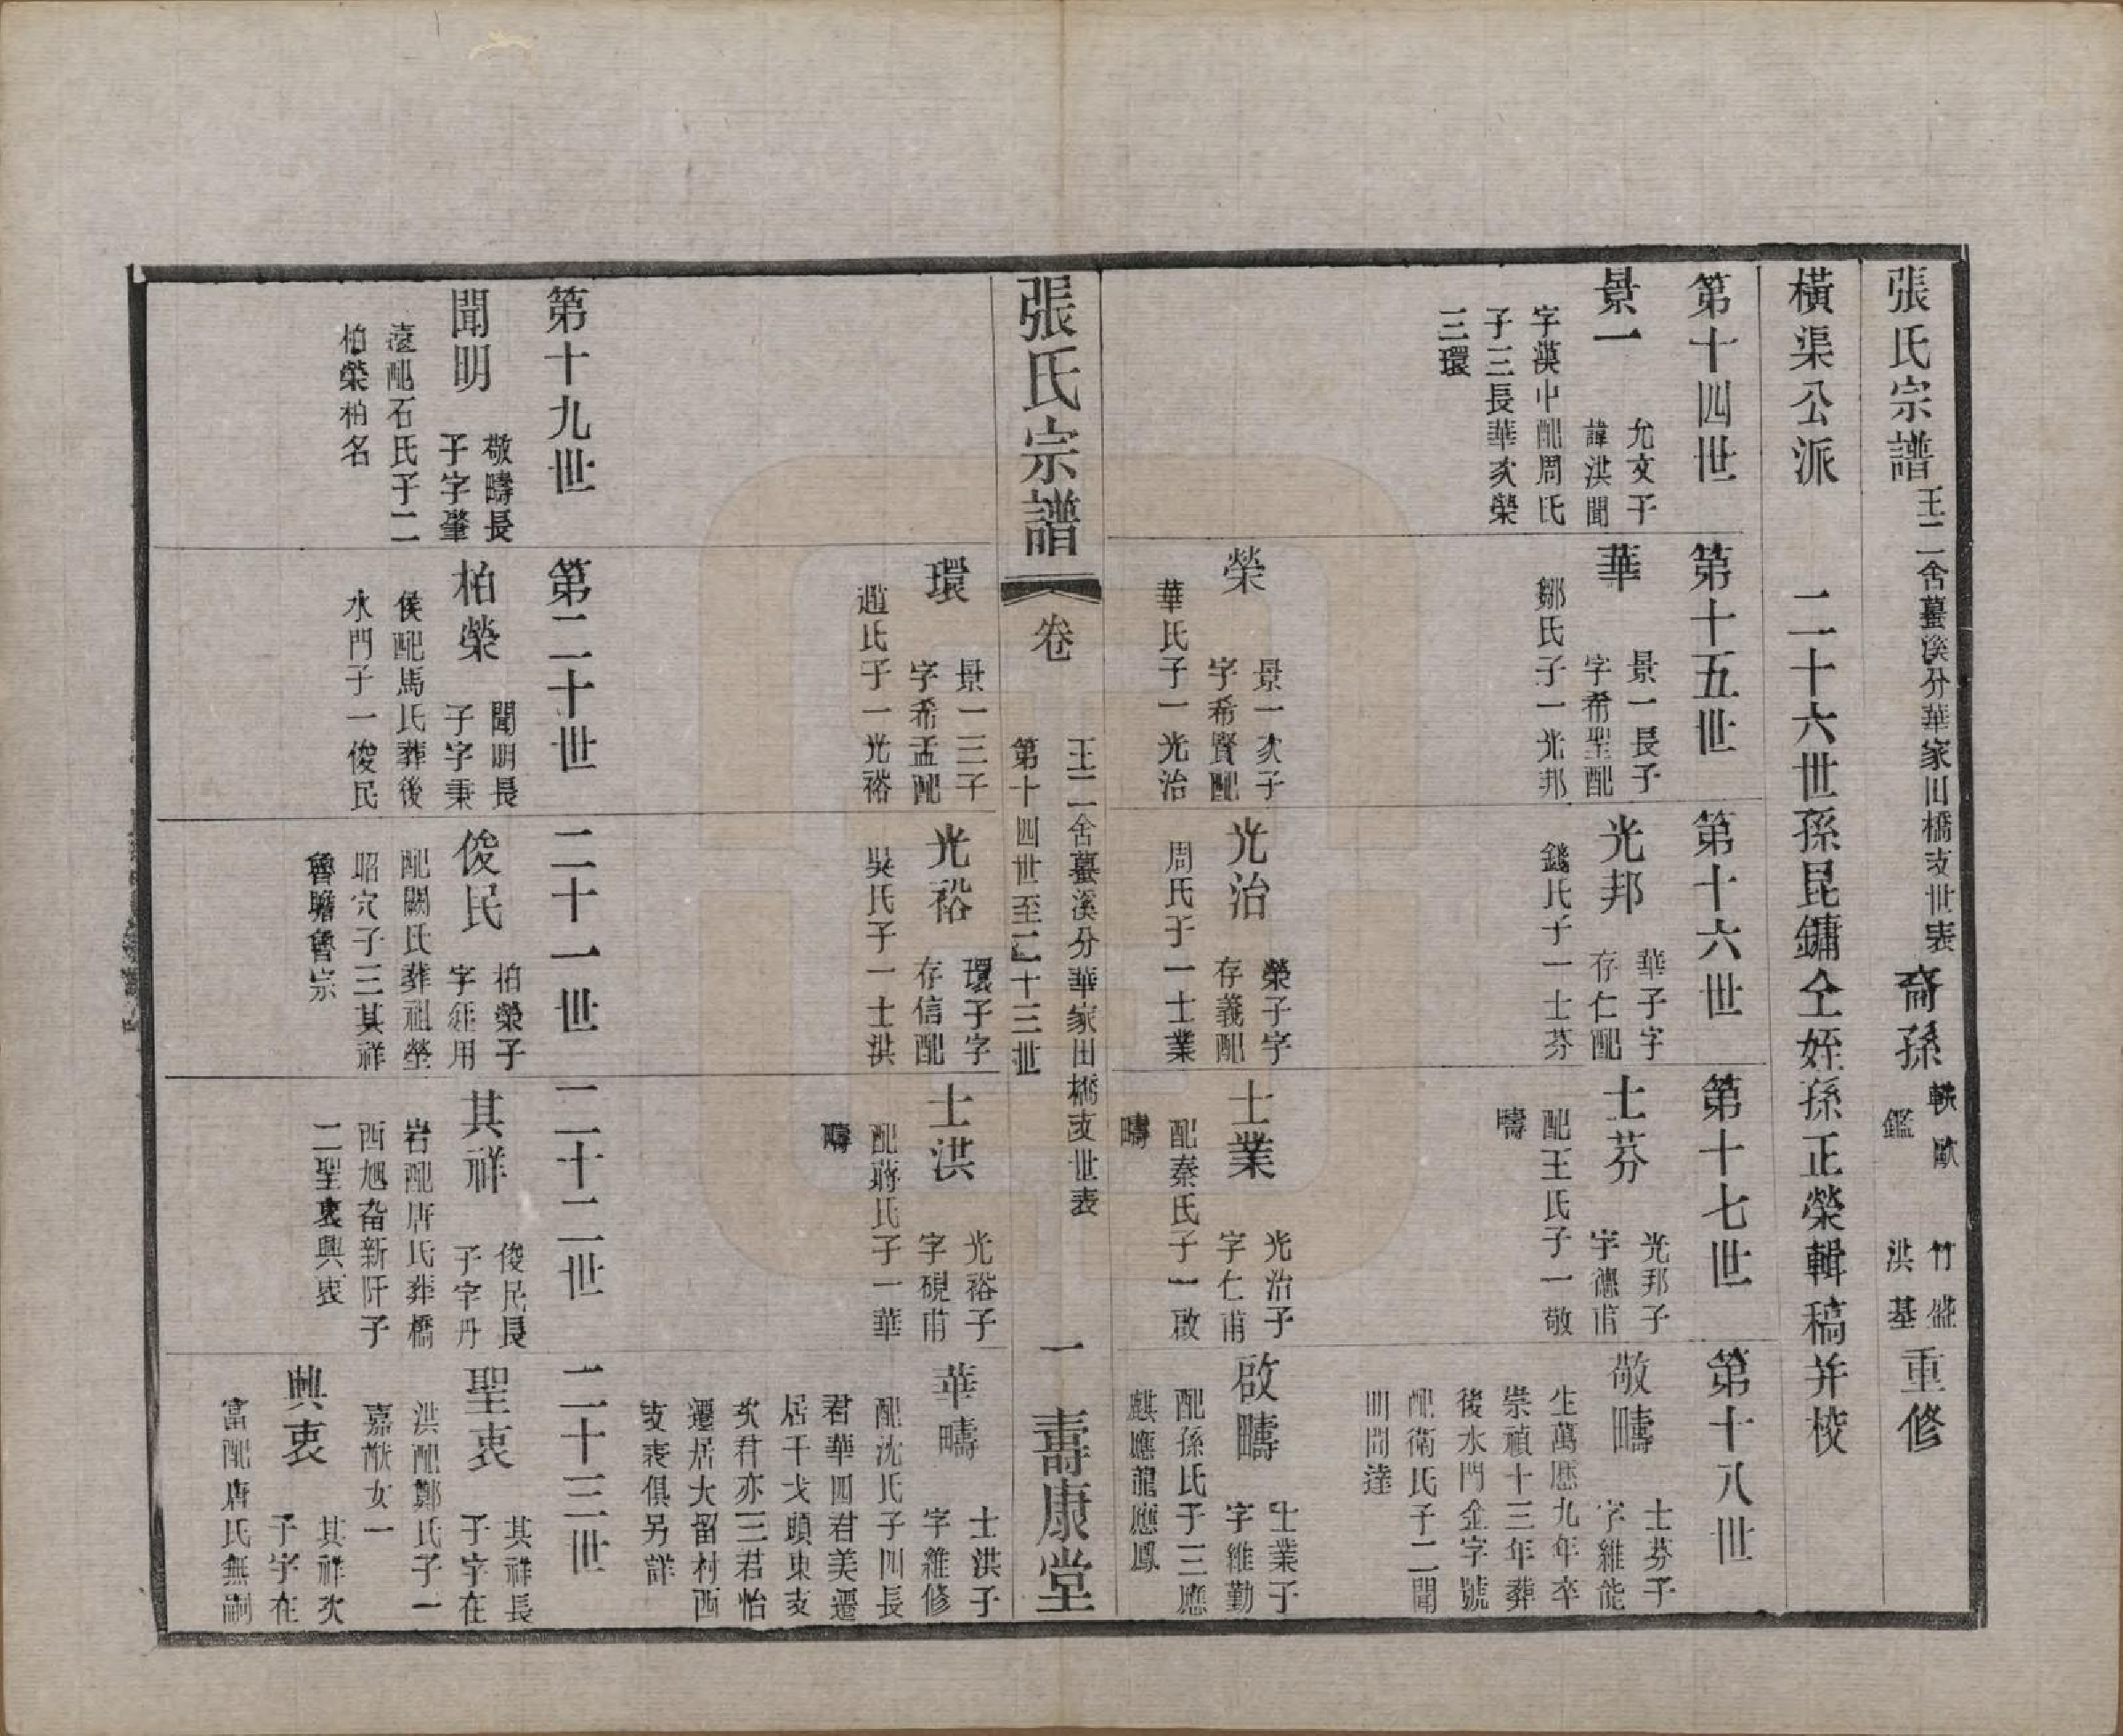 張氏宗譜 王二舍蠆溪分華家田橋支世表 裔孫 軼歐 鑑 竹盛 洪基 重修
橫渠公派 二十六世孫昆鏞仝姪孫正榮輯稿并校
第十四世
景一 允文子
諱洪聞
字漢中配周氏
子三長華次榮
三環
第十五世
華 景一長子
字希聖配
鄒氏子一光邦
第十六世
光邦 華子字
存仁配
錢氏子一士芬
第十七世
士芬 光邦子
字德甫
配王氏子一敬
疇
第十八世
敬疇 士芬子
字維能
生萬歷九年卒
崇禎十三年葬
後水門金字號
配衛氏子二聞
明聞達
榮 景一次子
字希賢配
華氏子一光治
光治 榮子字
存義配
周氏子一士業
士業 光治子
字仁甫
配秦氏子一啟
疇
啟疇 士業子
字維勤
配孫氏子三應
麒應龍應鳳
張氏宗譜 卷 王二舍蠆溪分華家田橋支世表
第十四世至二十三世
一 壽康堂
環 景一三子
字希孟配
趙氏子一光裕
光裕 環子字
存信配
吳氏子一士洪
士洪 光裕子
字硯甫
配蔣氏子一華
疇
華疇 士洪子
字維修
配沈氏子四長
君華四君美遷
居干戈頭東支
次君亦三君怡
遷居大留村西
支表俱另詳
第十九世
聞明 敬疇長
子字肇
遠配石氏子二
柏榮柏名
第二十世
柏榮 聞明長
子字秉
侯配馬氏葬後
水門子一俊民
二十一世
俊民 柏榮子
字用
配闕氏葬祖塋
昭穴子三其祥
魯瞻魯宗
二十二世
其祥 俊民長
子字丹
岩配唐氏葬橋
西旭畨新阡子
二聖衷興衷
二十三世
聖衷 其祥長
子字在
洪配鄭氏子一
嘉猷女一
興衷 其祥次
子字在
富配唐氏無嗣